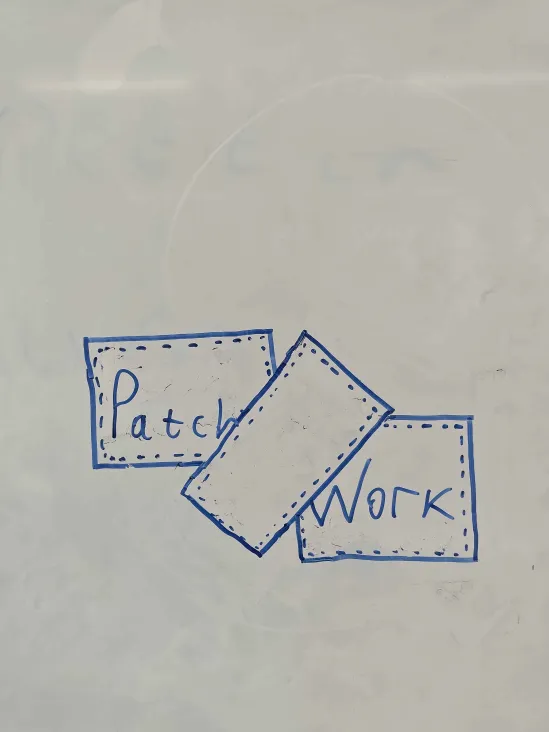 Patch
Work